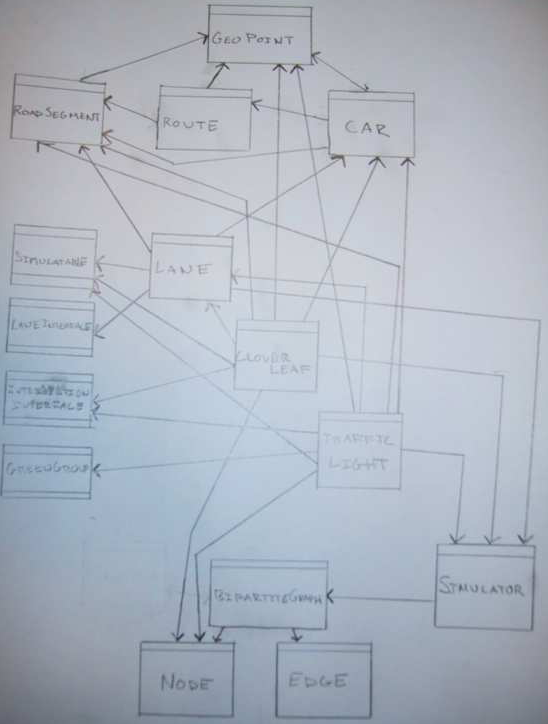 GEOPOINT
ROADSEGMENT
ROUTE
CAR
SIMULATABLE
LANE
LANEINTERFACE
CLOVER
LEAF
INTERSECTION
INTERFACE
TRAFFIC
LIGHT
GREENGROUP
BIPARTITEGRAPH
SIMULATOR
NODE
EDGE